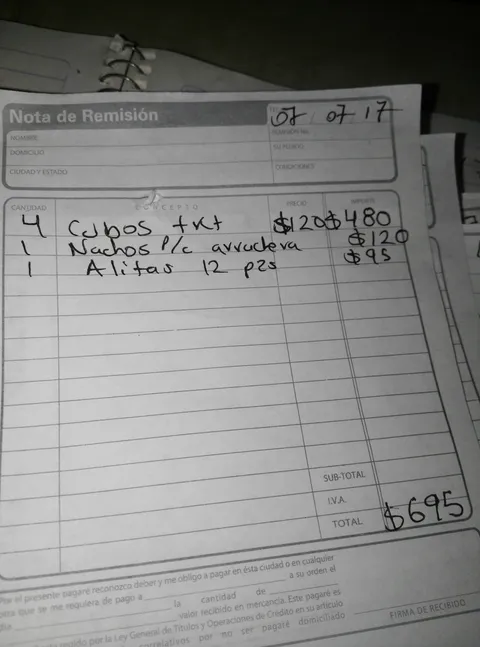 Nota de Remisión
07 07 17
NOMBRE
DOMICILIO
SU PEDIDO
CIUDAD Y ESTADO
CONDICIONES
CANTIDAD CONCEPTO PRECIO IMPORTE
4 Cubos txt $120 $480
1 Nachos P/c arrachera $120
1 Alitas 12 pzs $95
SUB-TOTAL
I.V.A.
TOTAL $695
Por el presente pagaré reconozco deber y me obligo a pagar en ésta ciudad o en cualquier
otra que se me requiera de pago a a su orden el
día la cantidad de
valor recibido en mercancía. Este pagaré es
regido por la Ley General de Títulos y Operaciones de Crédito en su artículo
correlativos por no ser pagaré domiciliado
FIRMA DE RECIBIDO